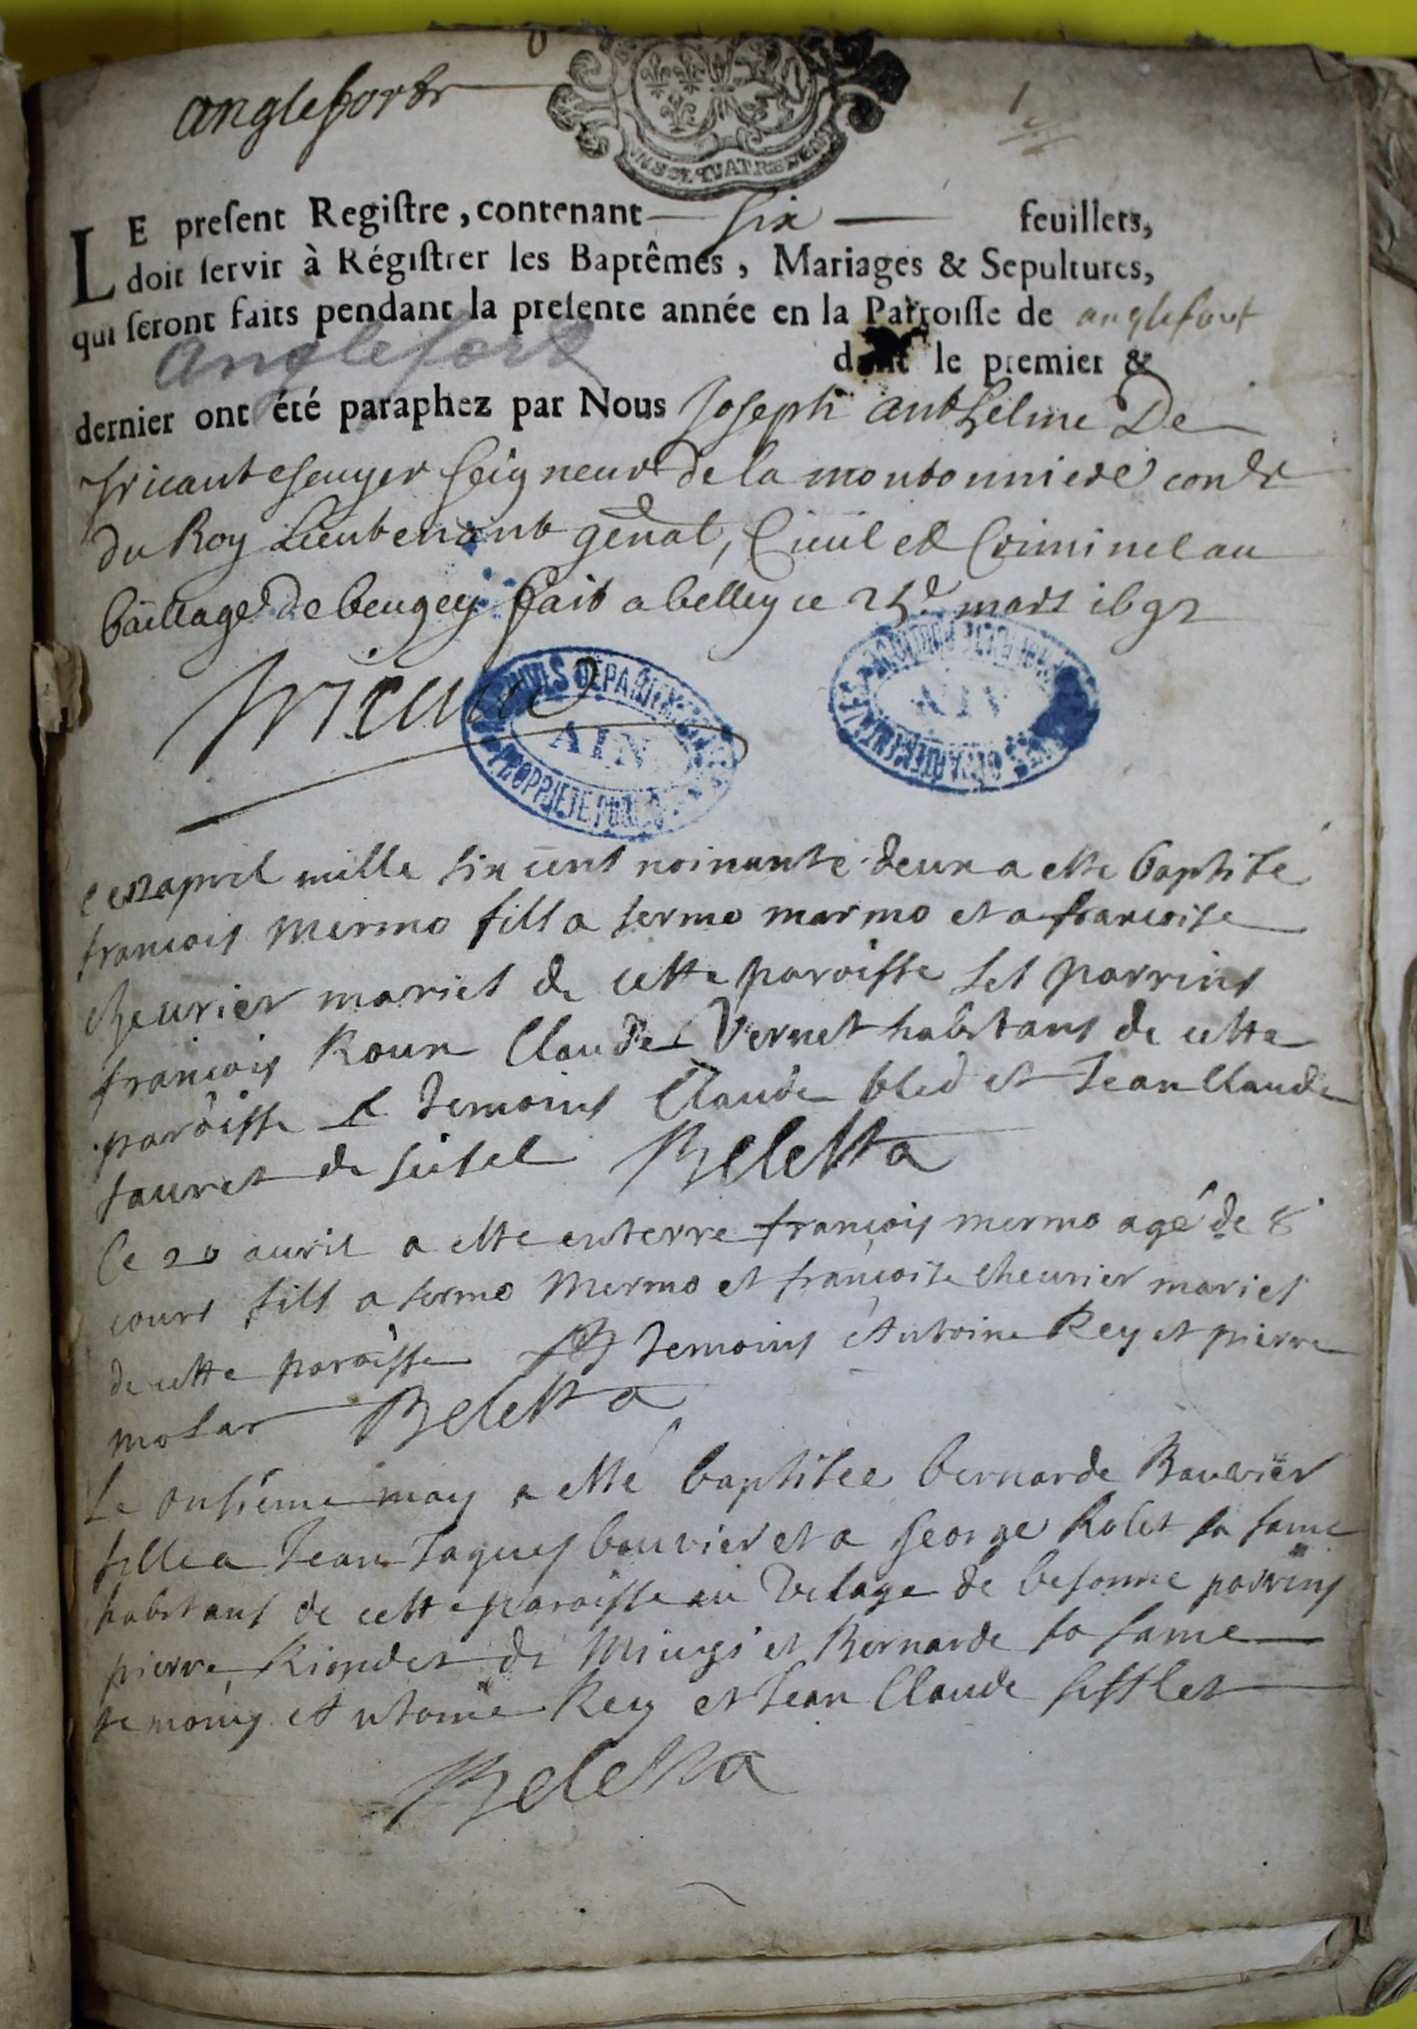 angleford
1
LE present Registre, contenant six feuillets,
doit servir à Régistrer les Baptêmes, Mariages & Sepultures,
qui seront faits pendant la presente année en la Parroisse de anglefort
anglefort dont le premier &
dernier ont été paraphez par Nous Joseph anthelme De
Tricaut escuyer seigneur de la moutonniere conr
du Roy Lieutenant genal, Ciuil et Criminel au
bailliage de beugey fait a belley ce 25e mars 1692
Tricaud
ARCHIVES DEPARTEMENTALES
AIN
PROPRIETE PUBLIQUE
AIN
ce 12 apvril mille six cent noinante deux a esté baptisé
françois mermo fils a sermo marmo et a françoise
cheurier mariés de cette paroisse ses parrins
françois Roux Claude Vernet habitans de cette
paroisse temoins Claude bled et Jean Claude
fauret de seisel Beletta
Ce 20 auril a esté enterre françois mermo agé de 8
iours fils a sermo Mermo et françoise cheurier mariés
de cette paroisse temoins Antoine Rey et pierre
motar Beletta
Le onsiéme may a esté baptisee bernarde Bouvier
fille a Jean Jaques bouvier et a george Rolet sa fame
habitans de cette paroisse au vilage de besonne parrins
pierre Riondet de et Bernarde sa fame
temoins Antoine Rey et Jean Claude
Beletta